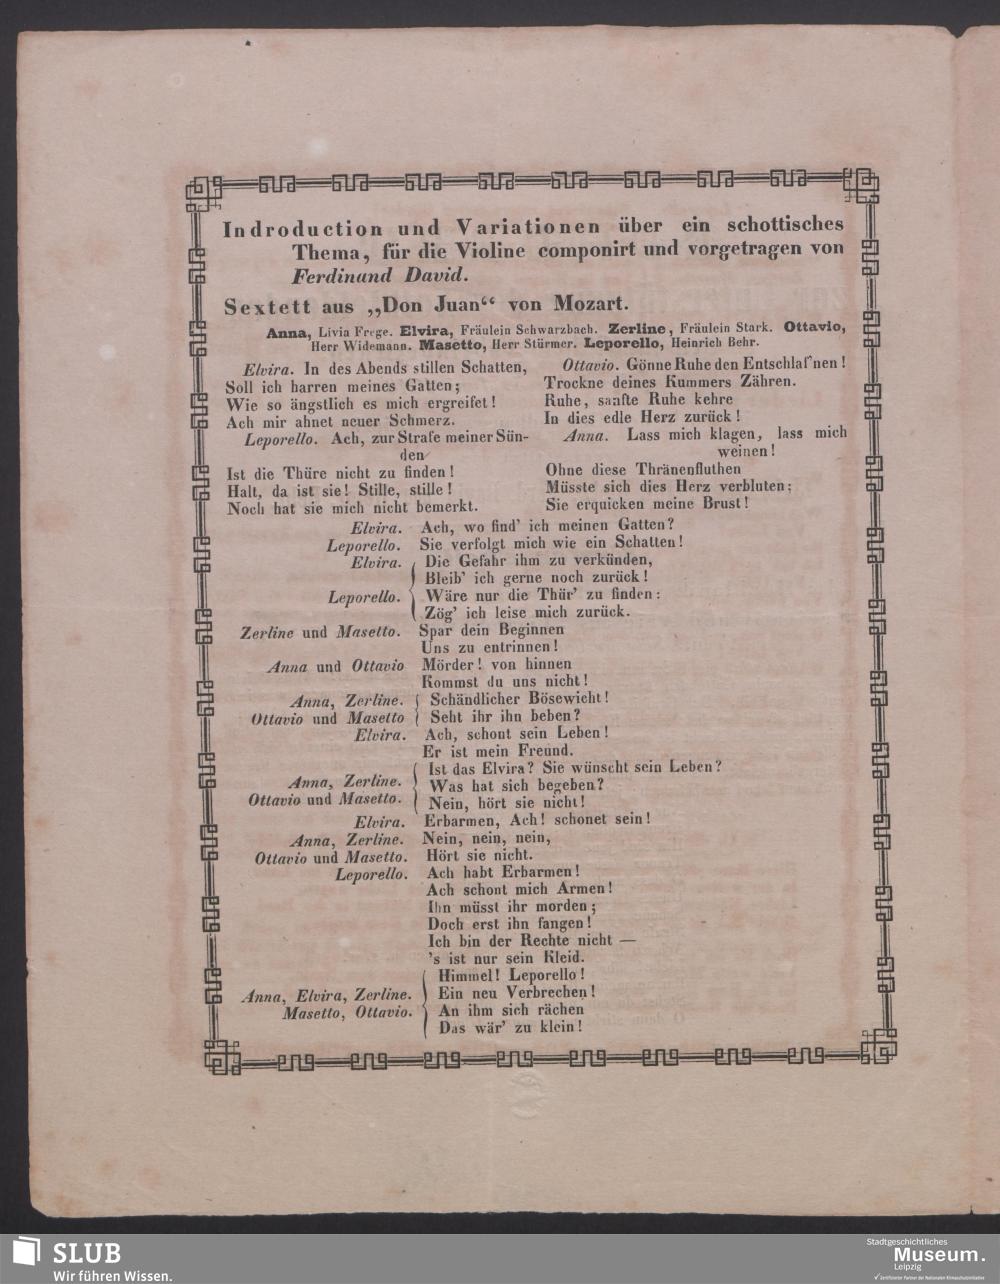 Indroduction und Variationen über ein schottisches
Thema, für die Violine componirt und vorgetragen von
Ferdinand David.
Sextett aus „Don Juan“ von Mozart.
Anna, Livia Frege. Elvira, Fräulein Schwarzbach. Zerline, Fräulein Stark. Ottavio,
Herr Widemann. Masetto, Herr Stürmer. Leporello, Heinrich Behr.
Elvira. In des Abends stillen Schatten,
Soll ich harren meines Gatten;
Wie so ängstlich es mich ergreifet!
Ach mir ahnet neuer Schmerz.
Leporello. Ach, zur Strafe meiner Sün-
den
Ist die Thüre nicht zu finden!
Halt, da ist sie! Stille, stille!
Noch hat sie mich nicht bemerkt.
Ottavio. Gönne Ruhe den Entschlaf'nen!
Trockne deines Kummers Zähren.
Ruhe, sanfte Ruhe kehre
In dies edle Herz zurück!
Anna. Lass mich klagen, lass mich
weinen!
Ohne diese Thränenfluthen
Müsste sich dies Herz verbluten;
Sie erquicken meine Brust!
Elvira. Ach, wo find' ich meinen Gatten?
Leporello. Sie verfolgt mich wie ein Schatten!
Elvira. Die Gefahr ihm zu verkünden,
Bleib' ich gerne noch zurück!
Leporello. Wäre nur die Thür' zu finden:
Zög' ich leise mich zurück.
Zerline und Masetto. Spar dein Beginnen
Uns zu entrinnen!
Anna und Ottavio Mörder! von hinnen
Kommst du uns nicht!
Anna, Zerline. Schändlicher Bösewicht!
Ottavio und Masetto Seht ihr ihn beben?
Elvira. Ach, schont sein Leben!
Er ist mein Freund.
Ist das Elvira? Sie wünscht sein Leben?
Anna, Zerline. Was hat sich begeben?
Ottavio und Masetto. Nein, hört sie nicht!
Elvira. Erbarmen, Ach! schonet sein!
Anna, Zerline. Nein, nein, nein,
Ottavio und Masetto. Hört sie nicht.
Leporello. Ach habt Erbarmen!
Ach schont mich Armen!
Ihn müsst ihr morden;
Doch erst ihn fangen!
Ich bin der Rechte nicht —
's ist nur sein Kleid.
Himmel! Leporello!
Anna, Elvira, Zerline. Ein neu Verbrechen!
Masetto, Ottavio. An ihm sich rächen
Das wär' zu klein!
SLUB
Wir führen Wissen.
Stadtgeschichtliches
Museum.
Leipzig
Zertifizierter Partner der Nationalen Klimaschutzinitiative